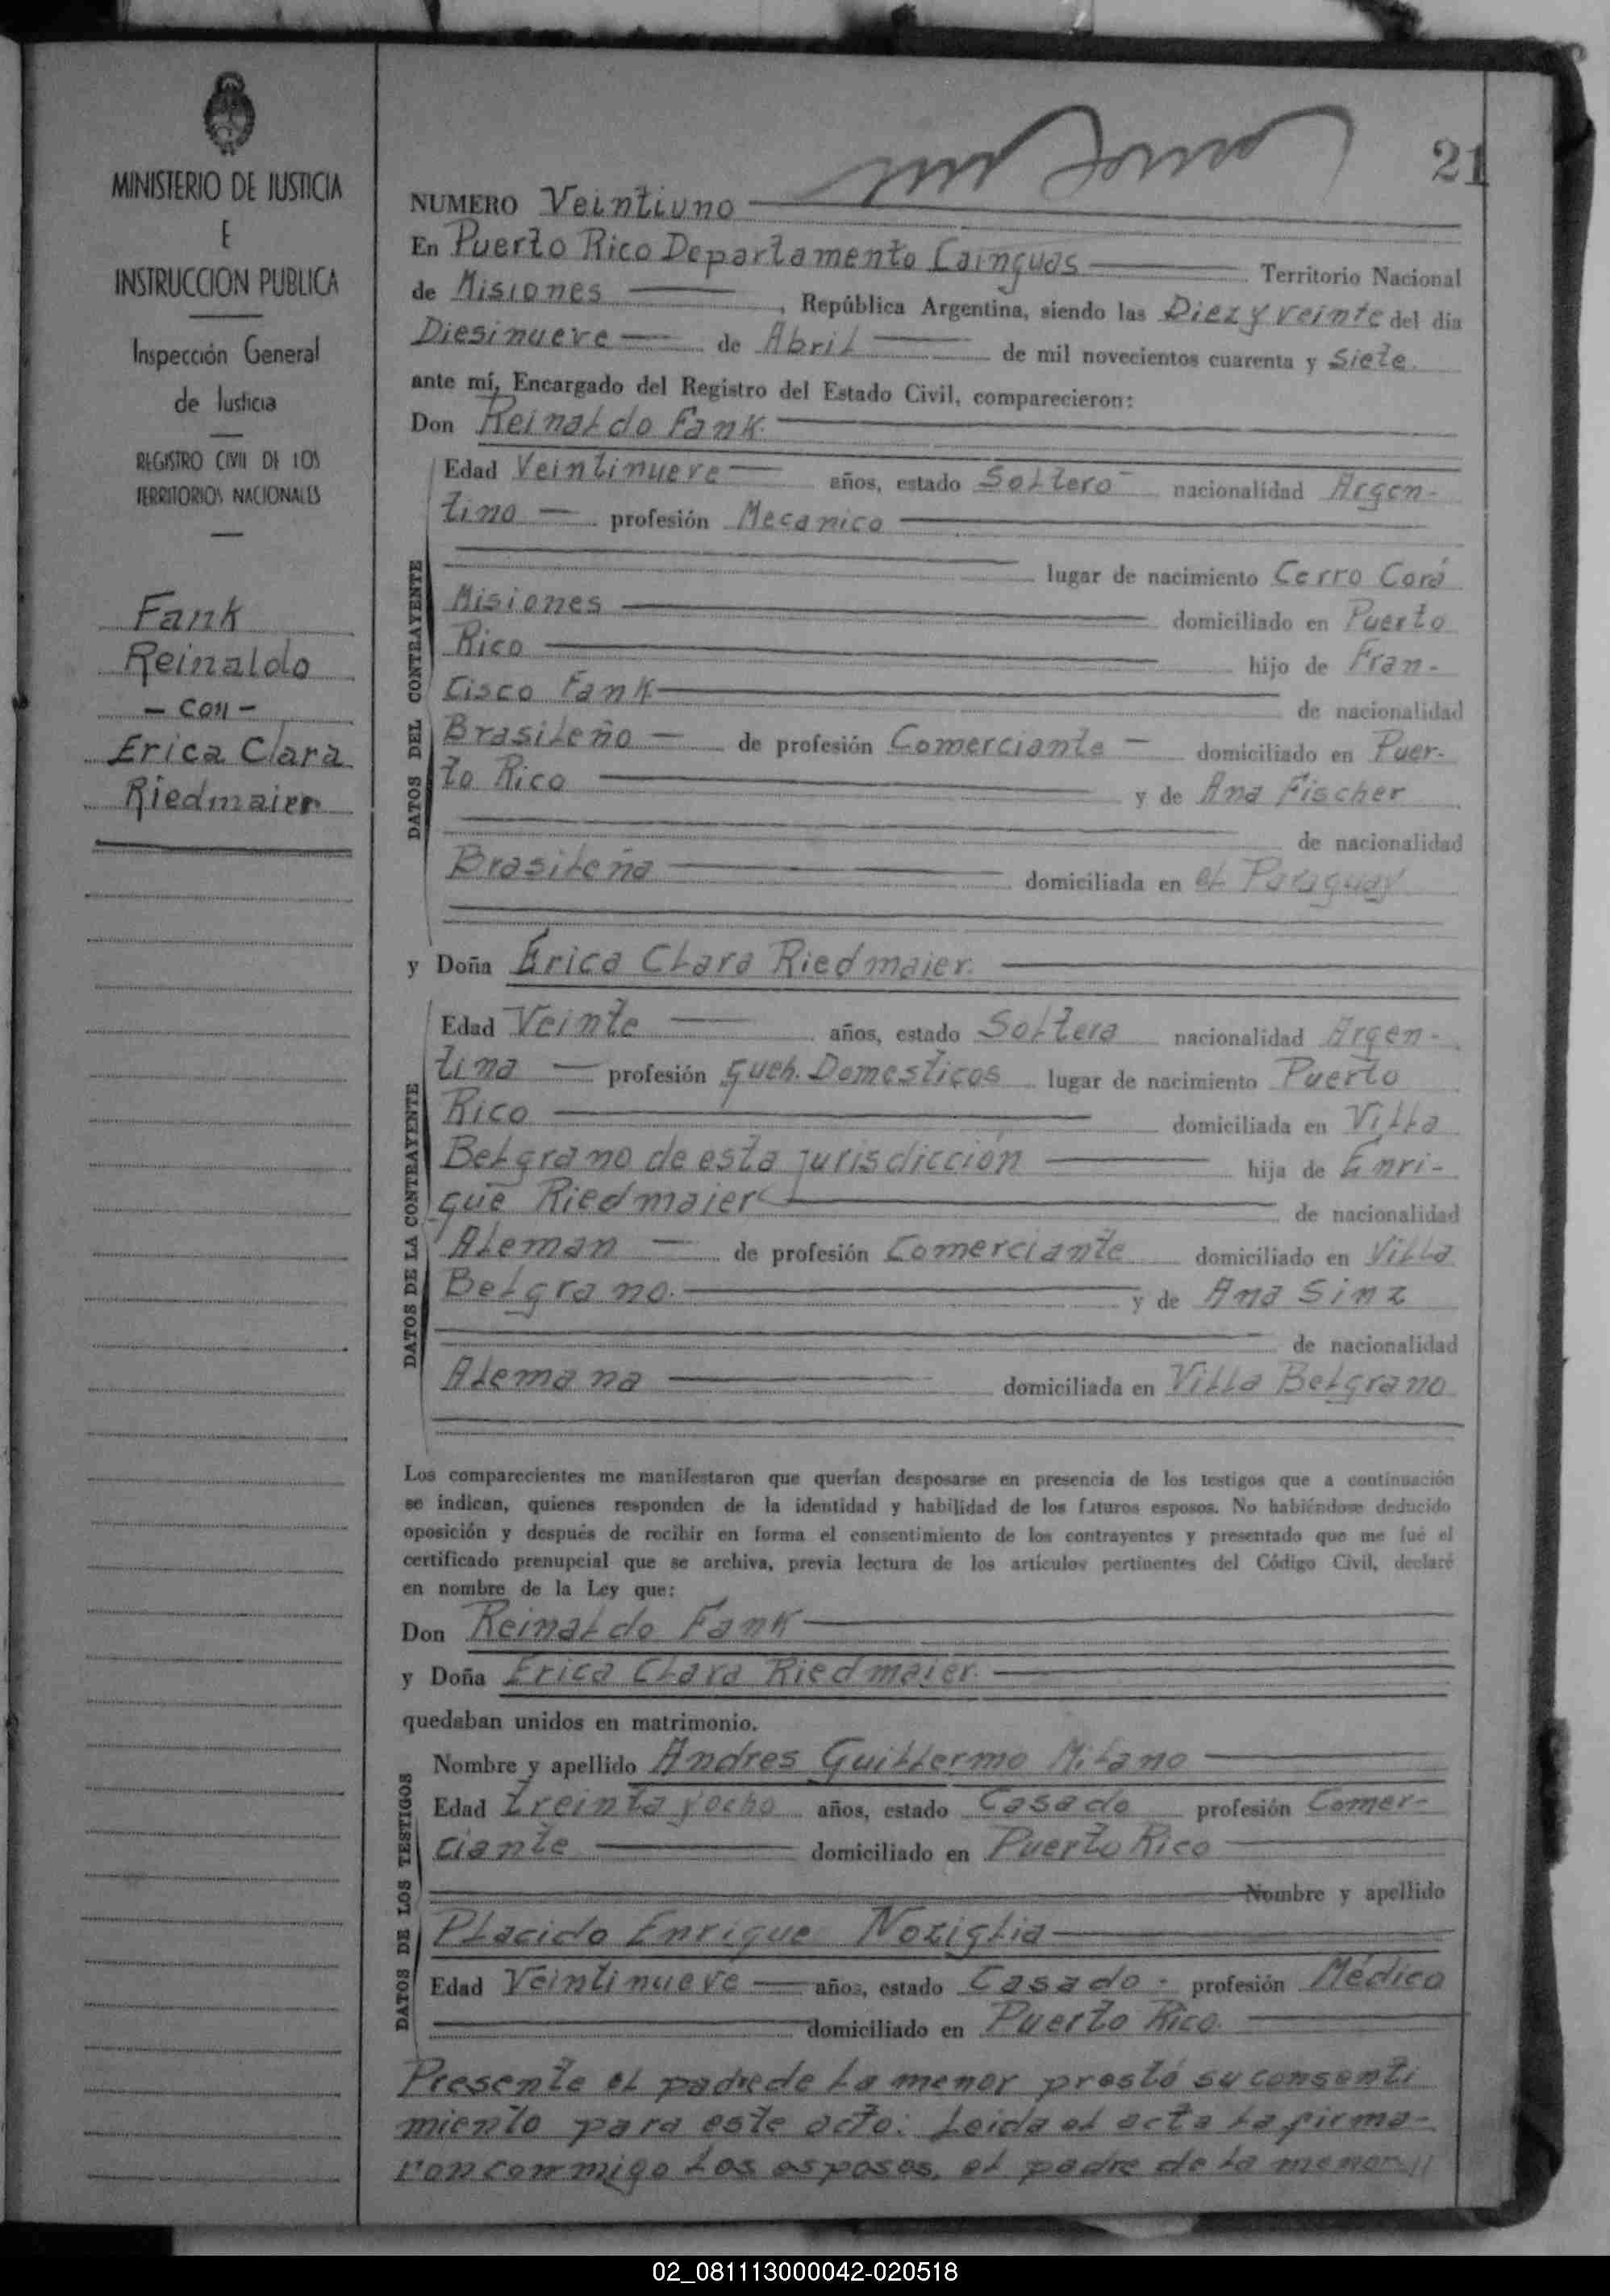 MINISTERIO DE JUSTICIA
E
INSTRUCCION PUBLICA
Inspección General
de Justicia
REGISTRO CIVIL DE LOS
TERRITORIOS NACIONALES
Fank
Reinaldo
- con -
Erica Clara
Riedmaier
21
NUMERO Veintiuno
En Puerto Rico Departamento Cainguas Territorio Nacional
de Misiones, República Argentina, siendo las Diez y veinte del día
Diesinueve de Abril de mil novecientos cuarenta y Siete
ante mí, Encargado del Registro del Estado Civil, comparecieron:
Don Reinaldo Fank
DATOS DEL CONTRAYENTE
Edad Veintinueve años, estado Soltero nacionalidad Argen-
tino profesión Mecanico
lugar de nacimiento Cerro Corá
Misiones domiciliado en Puerto
Rico hijo de Fran-
cisco Fank de nacionalidad
Brasileño de profesión Comerciante domiciliado en Puer-
to Rico y de Ana Fischer
de nacionalidad
Brasileña domiciliada en el Paraguay
y Doña Erica Clara Riedmaier.
DATOS DE LA CONTRAYENTE
Edad Veinte años, estado Soltera nacionalidad Argen-
tina profesión queh. Domesticos lugar de nacimiento Puerto
Rico domiciliada en Villa
Belgrano de esta jurisdicción hija de Enri-
que Riedmaier de nacionalidad
Aleman de profesión Comerciante domiciliado en Villa
Belgrano. y de Ana Sinz
de nacionalidad
Alemana domiciliada en Villa Belgrano
Los comparecientes me manifestaron que querían desposarse en presencia de los testigos que a continuación
se indican, quienes responden de la identidad y habilidad de los futuros esposos. No habiéndose deducido
oposición y después de recibir en forma el consentimiento de los contrayentes y presentado que me fué el
certificado prenupcial que se archiva, previa lectura de los artículos pertinentes del Código Civil, declaré
en nombre de la Ley que:
Don Reinaldo Fank
y Doña Erica Clara Riedmaier.
quedaban unidos en matrimonio.
DATOS DE LOS TESTIGOS
Nombre y apellido Andres Guillermo Milano
Edad treinta y ocho años, estado Casado profesión Comer-
ciante domiciliado en Puerto Rico
Nombre y apellido
Placido Enrique Noziglia
Edad Veintinueve años, estado Casado. profesión Médico
domiciliado en Puerto Rico.
Presente el padre de la menor prestó su consenti
miento para este acto: Leida el acta la firma-
ron conmigo los esposos, el padre de la menor//
02_081113000042-020518